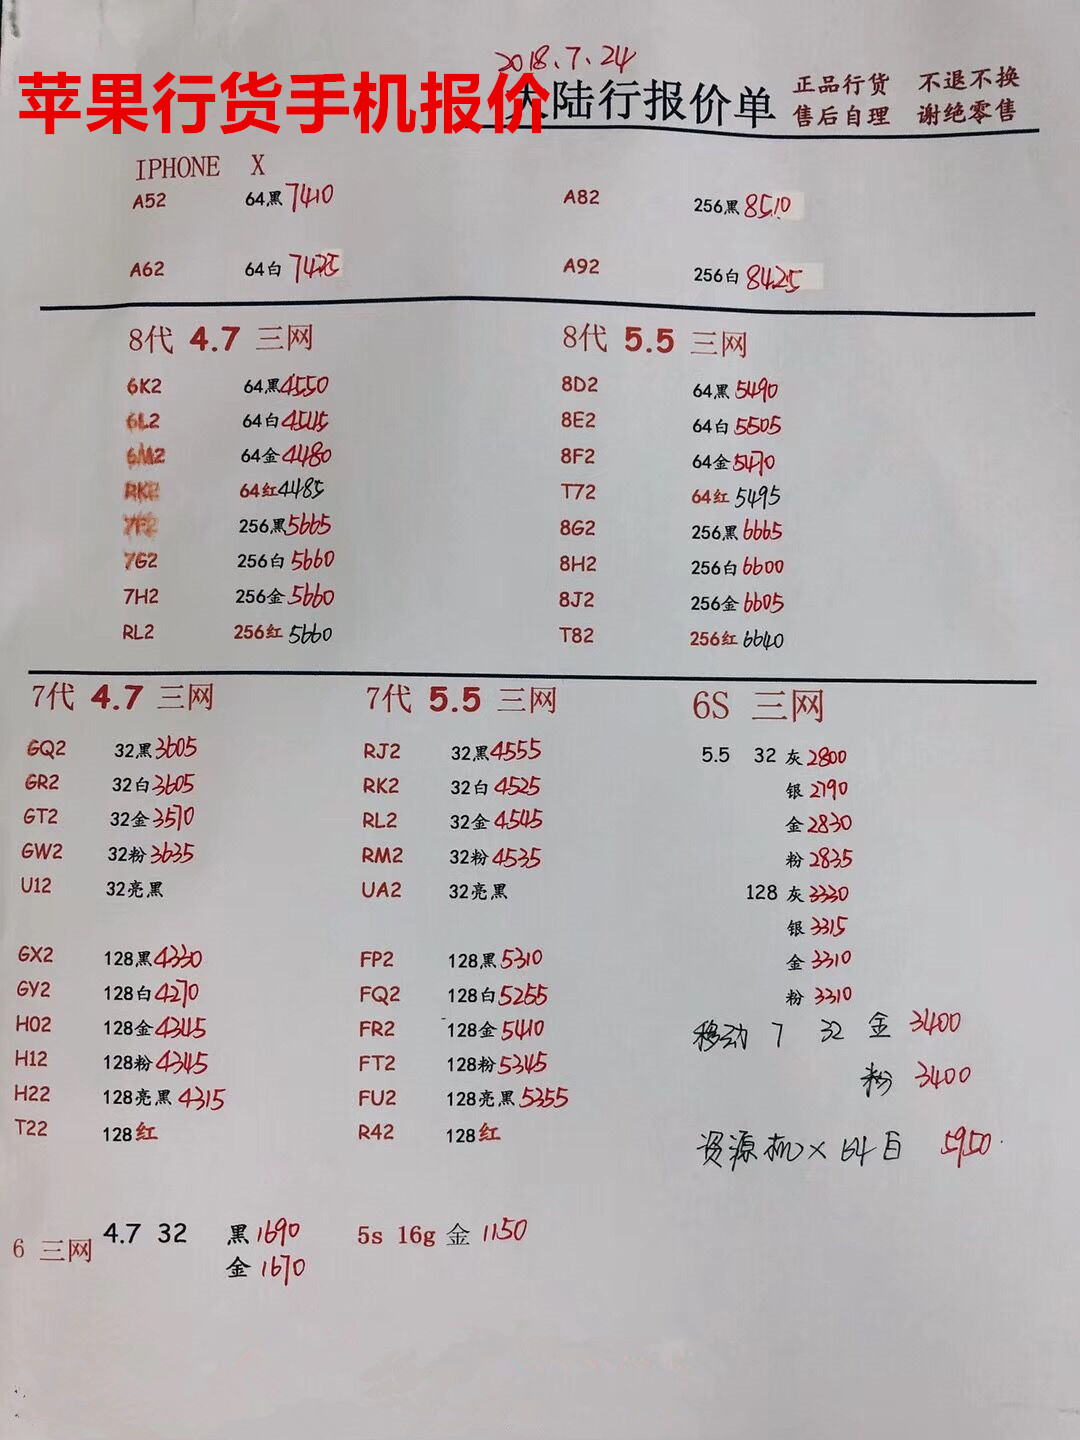 2018.7.24
苹果行货手机报价
大陆行报价单
正品行货 不退不换
售后自理 谢绝零售
IPHONE X
A52 64黑 7410 A82 256黑 8510
A62 64白 7425 A92 256白 8425
8代 4.7 三网 8代 5.5 三网
6K2 64黑 4550 8D2 64黑 5490
6L2 64白 4545 8E2 64白 5505
6M2 64金 4480 8F2 64金 5470
RK2 64红 4485 T72 64红 5495
7F2 256黑 5665 8G2 256黑 6665
7G2 256白 5660 8H2 256白 6600
7H2 256金 5660 8J2 256金 6605
RL2 256红 5660 T82 256红 6640
7代 4.7 三网 7代 5.5 三网 6S 三网
GQ2 32黑 3605 RJ2 32黑 4555 5.5 32 灰 2800
GR2 32白 3605 RK2 32白 4525 银 2790
GT2 32金 3570 RL2 32金 4545 金 2830
GW2 32粉 3635 RM2 32粉 4535 粉 2835
U12 32亮黑 UA2 32亮黑 128 灰 3330
银 3315
GX2 128黑 4330 FP2 128黑 5310 金 3310
GY2 128白 4270 FQ2 128白 5255 粉 3310
H02 128金 4345 FR2 128金 5410 移动 7 32 金 3400
H12 128粉 4345 FT2 128粉 5345 粉 3400
H22 128亮黑 4315 FU2 128亮黑 5355
T22 128红 R42 128红 资源机 X 64白 5950
6 三网 4.7 32 黑 1690 5s 16g 金 1150
金 1670